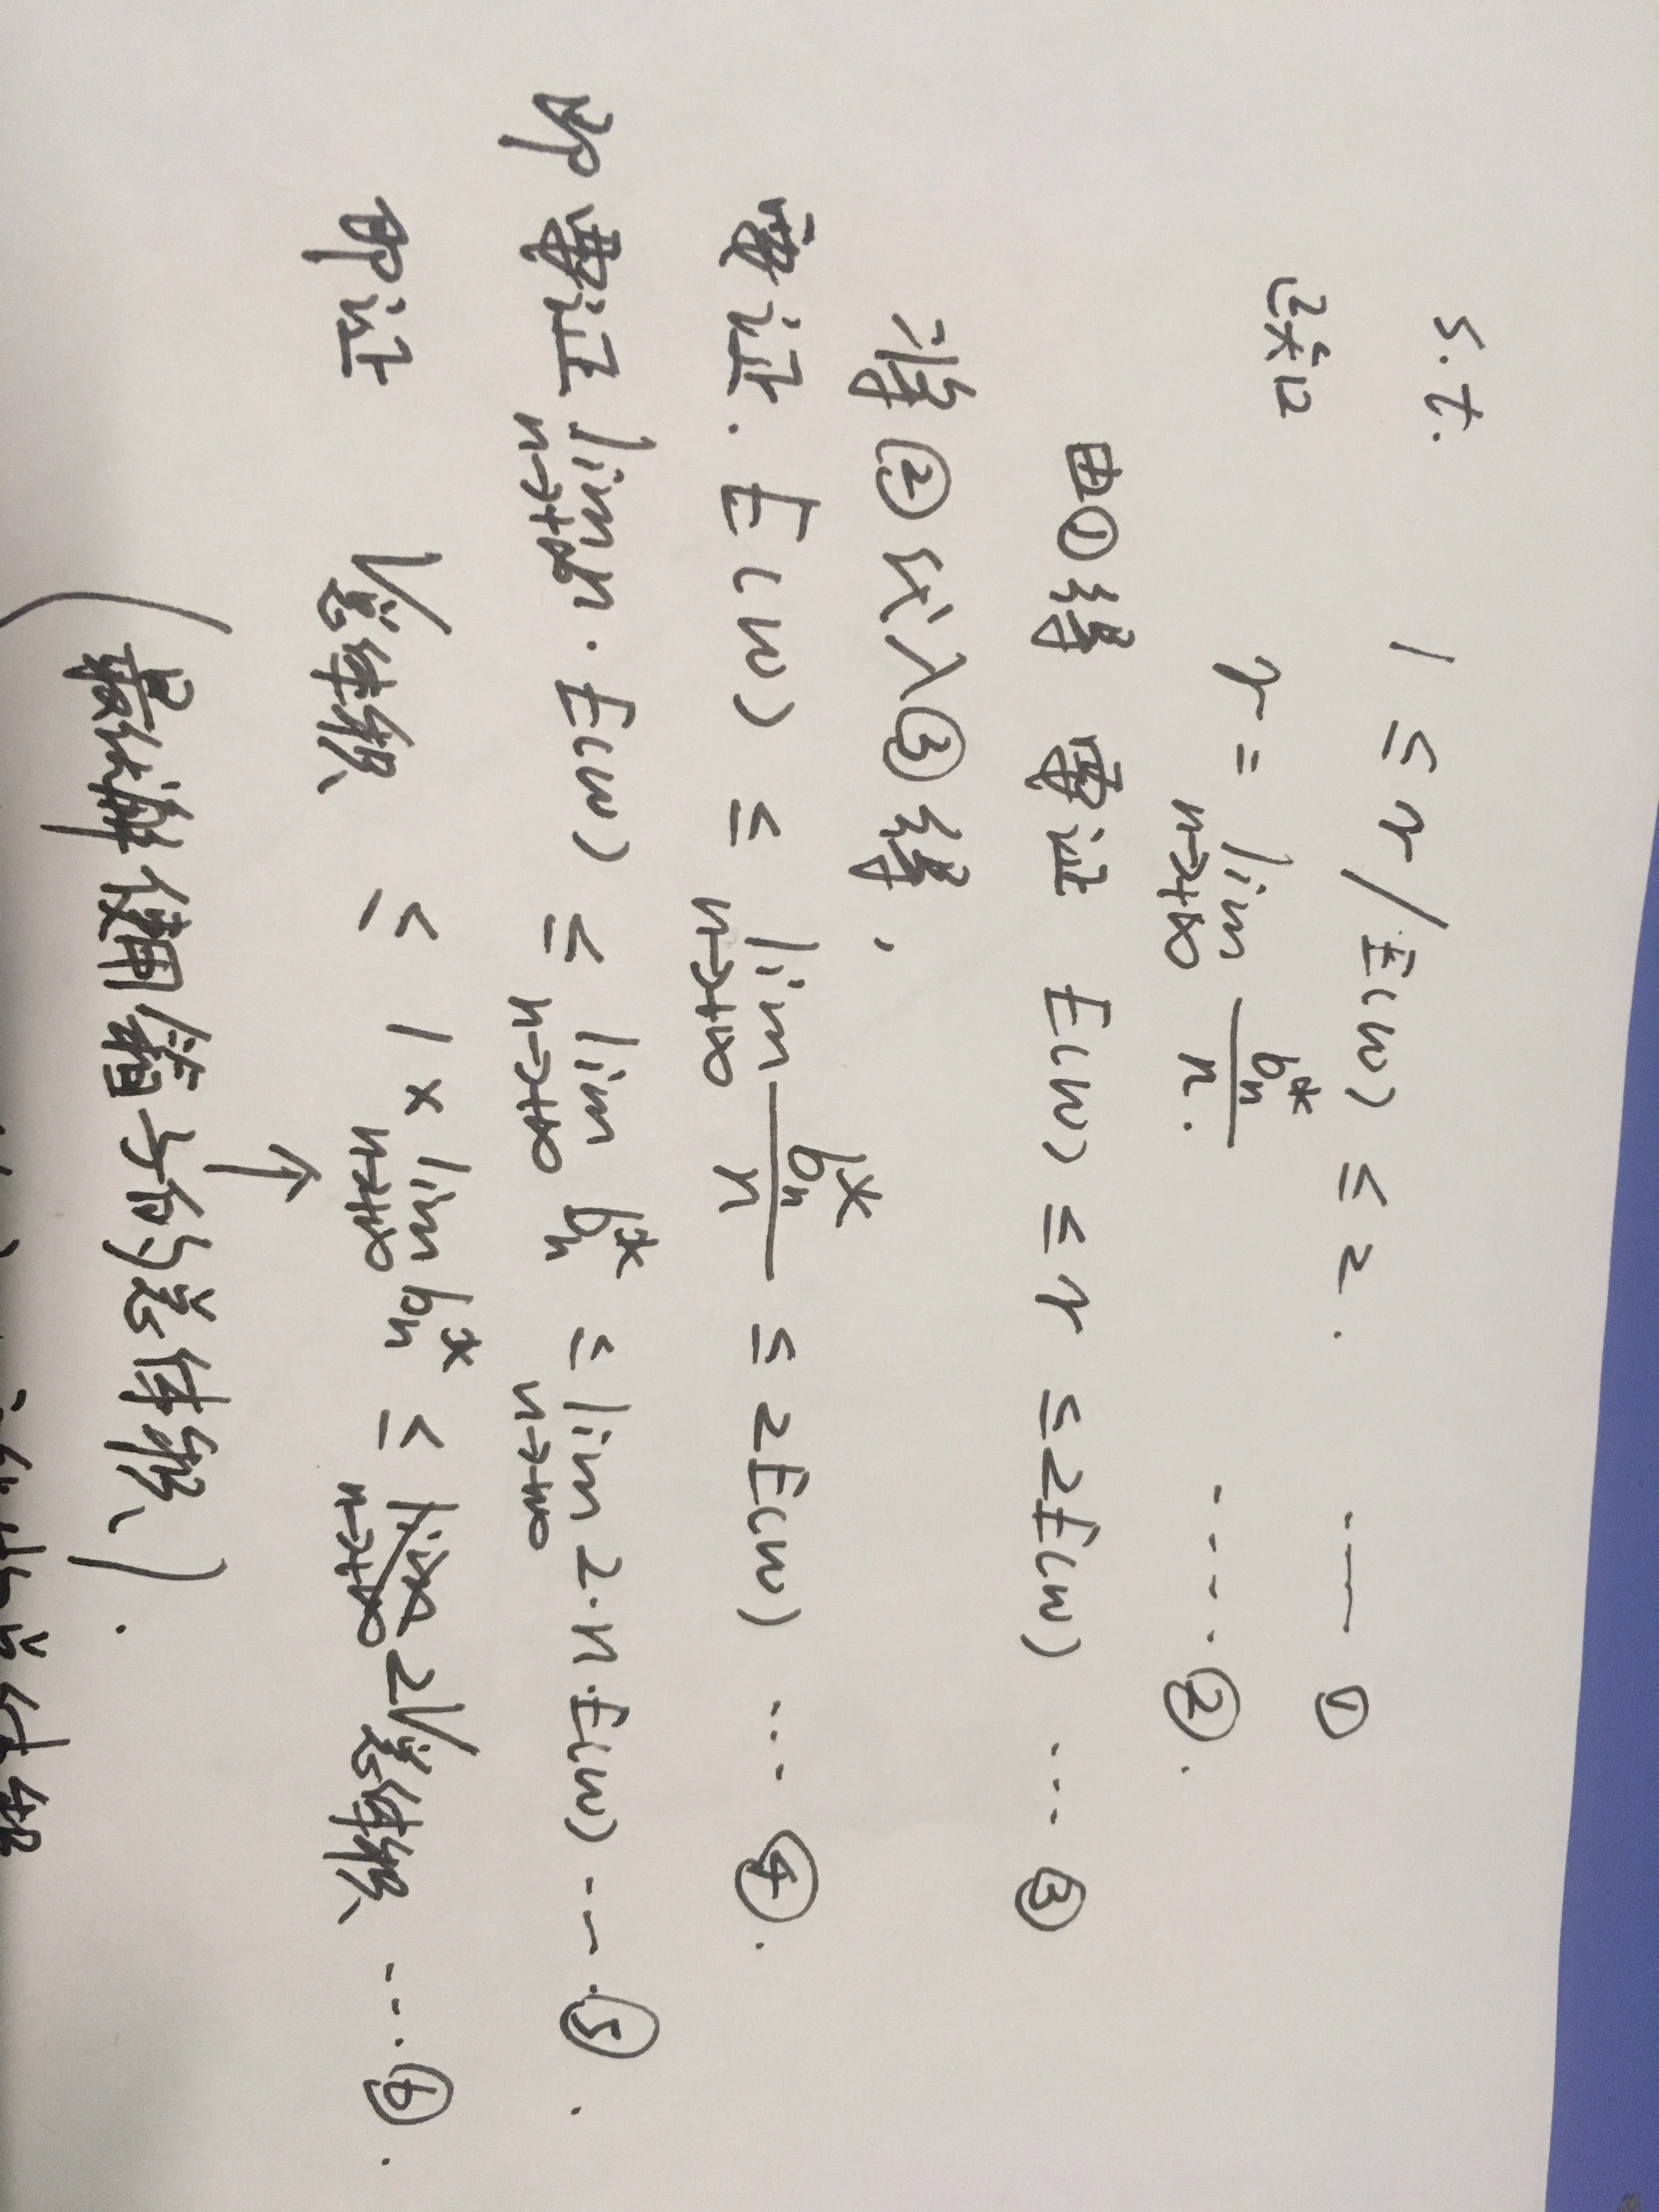 s.t. 1 ≤ r/E(w) ≤ 2. ...... ①
已知 r = lim n→+∞ bn*/n. ..... ②.
由①得 需证 E(w) ≤ r ≤ 2E(w) ... ③
将②代入③得,
需证. E(w) ≤ lim n→+∞ bn*/n ≤ 2E(w) ... ④.
即需证 lim n→+∞ n·E(w) ≤ lim n→+∞ bn* ≤ lim n→+∞ 2·n·E(w) ... ⑤.
即证 V总体积 ≤ 1× lim n→+∞ bn* ≤ 2V总体积 ... ⑥.
↑
(最优解使用箱子的总体积).